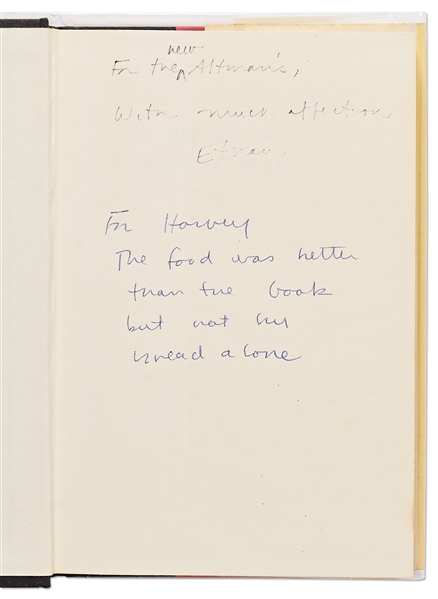 new
For the ^ Altman's,
With much affection,
Ethan.
For Harvey
The food was better
than the book
but not by
bread alone